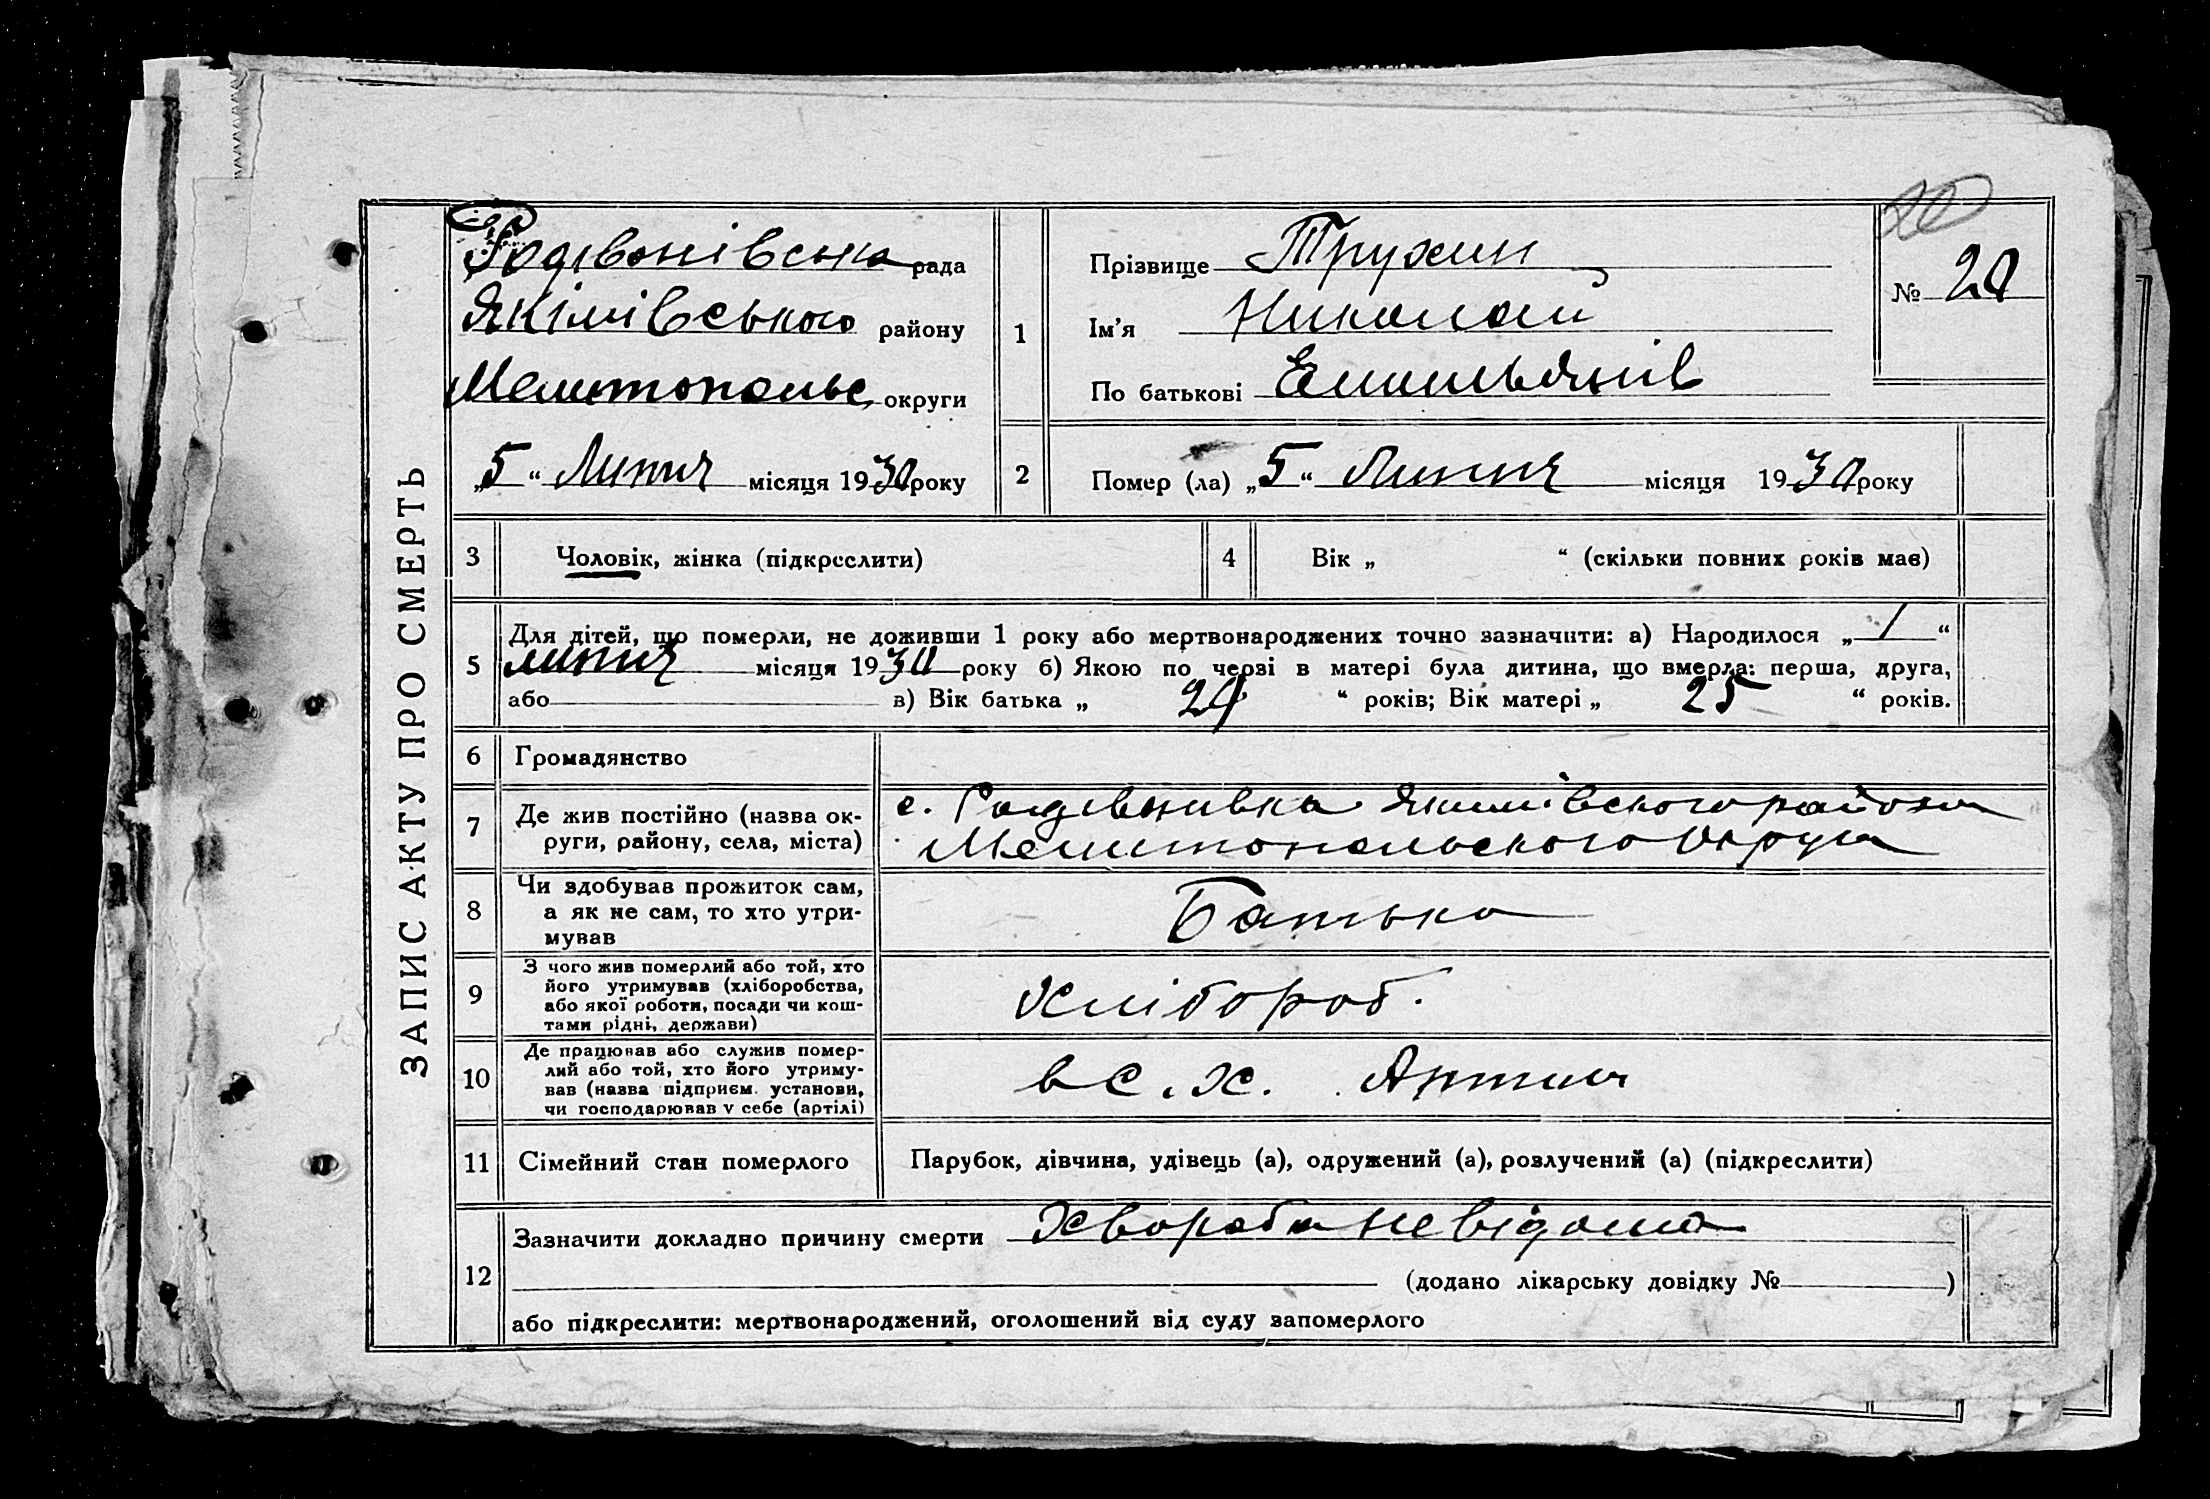 ЗАПИС АКТУ ПРО СМЕРТЬ
Родівонівська рада
Якімівського району
Мелитопольс. округи
„5“ Липня місяця 1930 року
1
Прізвище Трухин
Ім'я Николай
По батькові Емильянів
20
№ 20
2
Помер (ла) „5“ Липня місяця 1930 року
3 Чоловік, жінка (підкреслити)
4 Вік „ “ (скільки повних років має)
5 Для дітей, що померли, не доживши 1 року або мертвонароджених точно зазначити: а) Народилося „1“
липня місяця 1930 року б) Якою по черзі в матері була дитина, що вмерла: перша, друга,
або в) Вік батька „ 24 “ років; Вік матері „ 25 “ років.
6 Громадянство
7 Де жив постійно (назва ок-
руги, району, села, міста)
с. Родівнивка Якимівского района
Мелитопольского округа
8 Чи здобував прожиток сам,
а як не сам, то хто утри-
мував
Батько
9 З чого жив померлий або той, хто
його утримував (хліборобства,
або якої роботи, посади чи кош-
тами рідні, держави)
Хлібороб.
10 Де працював або служив помер-
лий або той, хто його утриму-
вав (назва підприєм. установи,
чи господарював у себе (артілі)
в с. х. Артили
11 Сімейний стан померлого
Парубок, дівчина, удівець (а), одружений (а), розлучений (а) (підкреслити)
12 Зазначити докладно причину смерти Хвороба невідома
(додано лікарську довідку № )
або підкреслити: мертвонароджений, оголошений від суду запомерлого